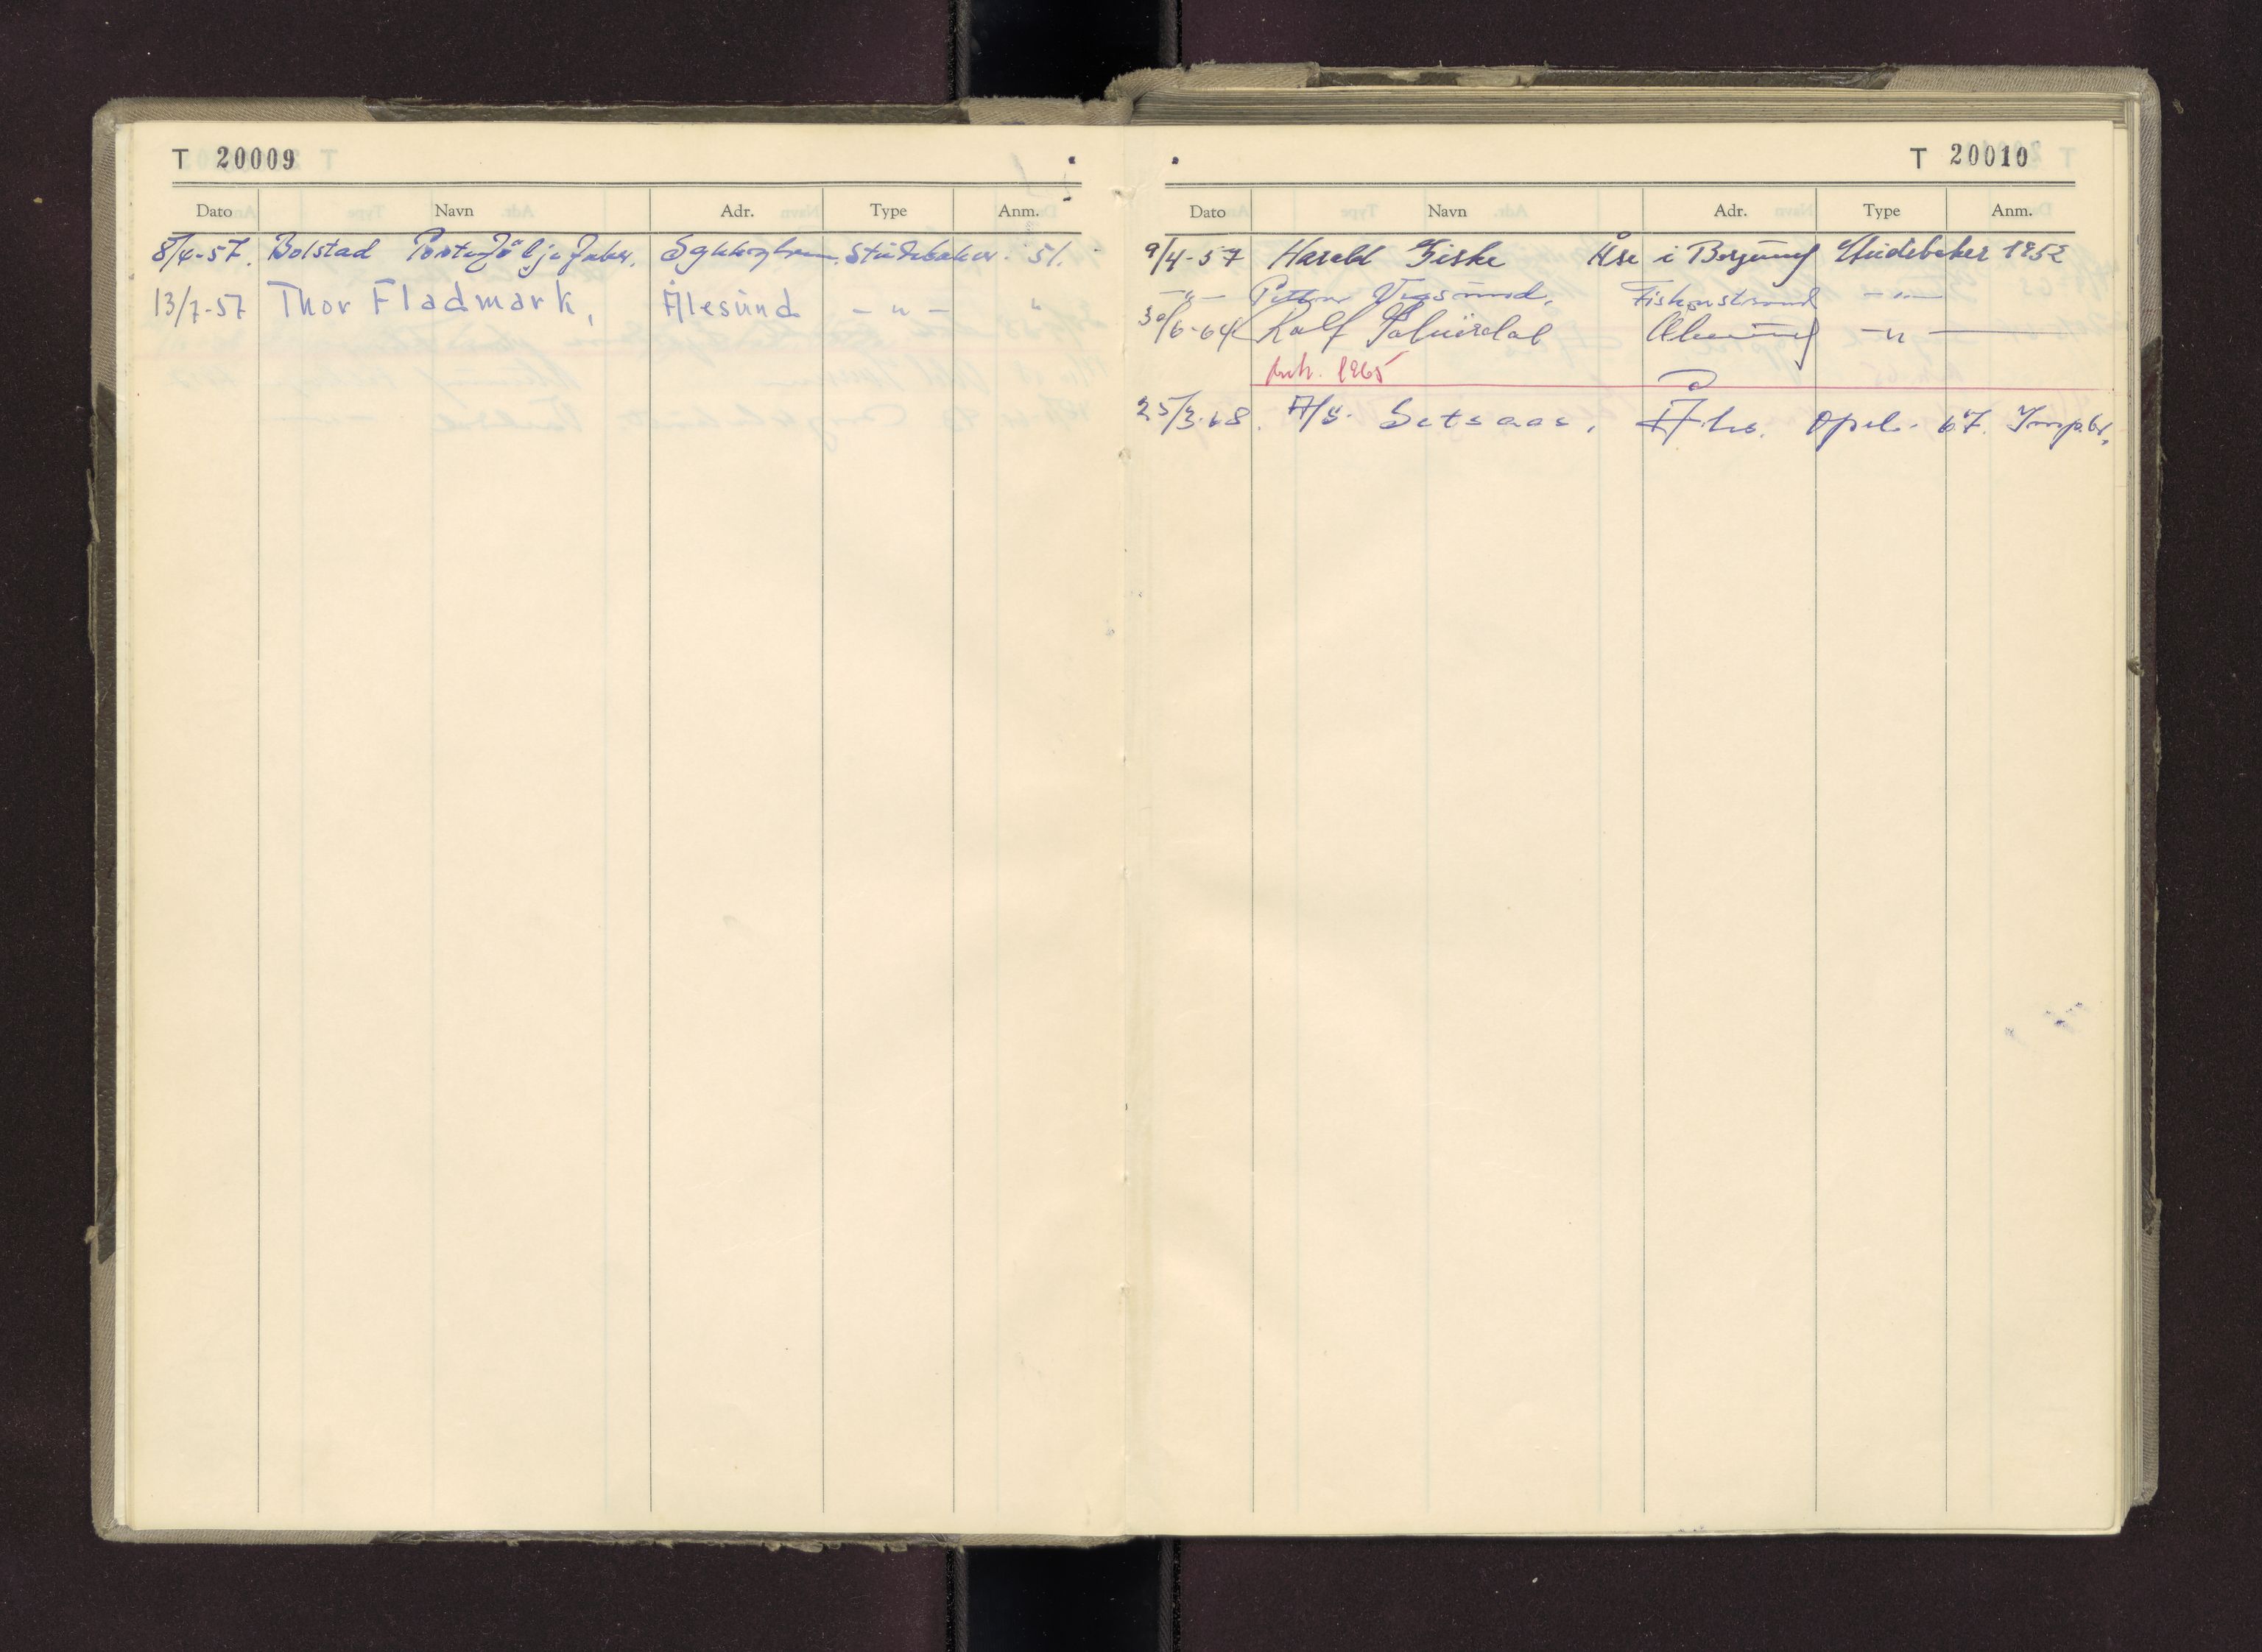 T 20009
Dato Navn Adr. Type Anm.
8/4-57. Bolstad Portefölje fabr. Sykkylven. Studebaker. 51.
13/7-57 Thor Fladmark, Ålesund - " - "
T 20010
Dato Navn Adr. Type Anm.
9/4-57 Harald Fiske Åse i Borgund Studebaker 1952
- " - Petter Fiskarstrand - " -
30/6-64 Rolf Ålesund - " -
1965
25/3-68. A/S. Setsaas, Åhs. Opel. 67. Impbr.